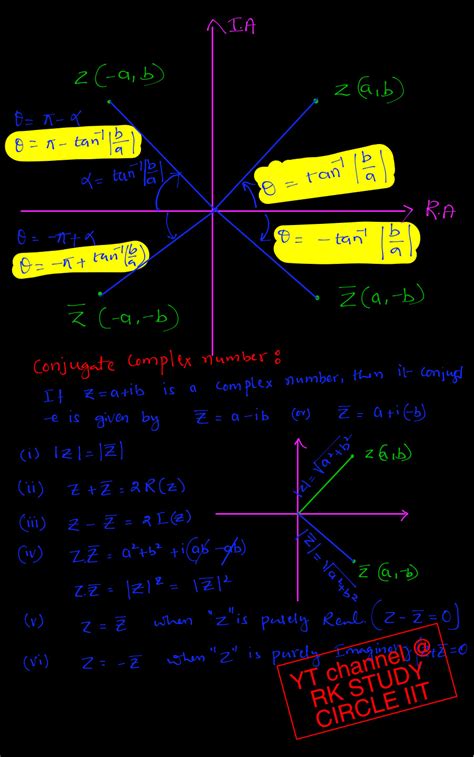 I.A
z(-a,b)
z(a,b)
θ = π - α
θ = π - tan⁻¹|b/a|
α = tan⁻¹|b/a|
θ = tan⁻¹|b/a|
R.A
θ = -π + α
θ = -π + tan⁻¹|b/a|
θ = - tan⁻¹|b/a|
z̅ (-a,-b)
z̅(a,-b)
Conjugate Complex number:
If z = a+ib is a complex number, then it conjugat
-e is given by z̅ = a-ib (or) z̅ = a+i(-b)
(i) |z| = |z̅|
(ii) z + z̅ = 2R(z)
(iii) z - z̅ = 2I(z)
(iv) z.z̅ = a²+b² + i(ab - ab)
z.z̅ = |z|² = |z̅|²
z(a,b)
|z| = √a²+b²
|z̅| = √a²+b²
z̅ (a,-b)
(v) z = z̅ when "z" is purely Real (z - z̅ = 0)
(vi) z = -z̅ when "z" is purely Imaginary z̅ = 0
YT channel @
RK STUDY
CIRCLE IIT